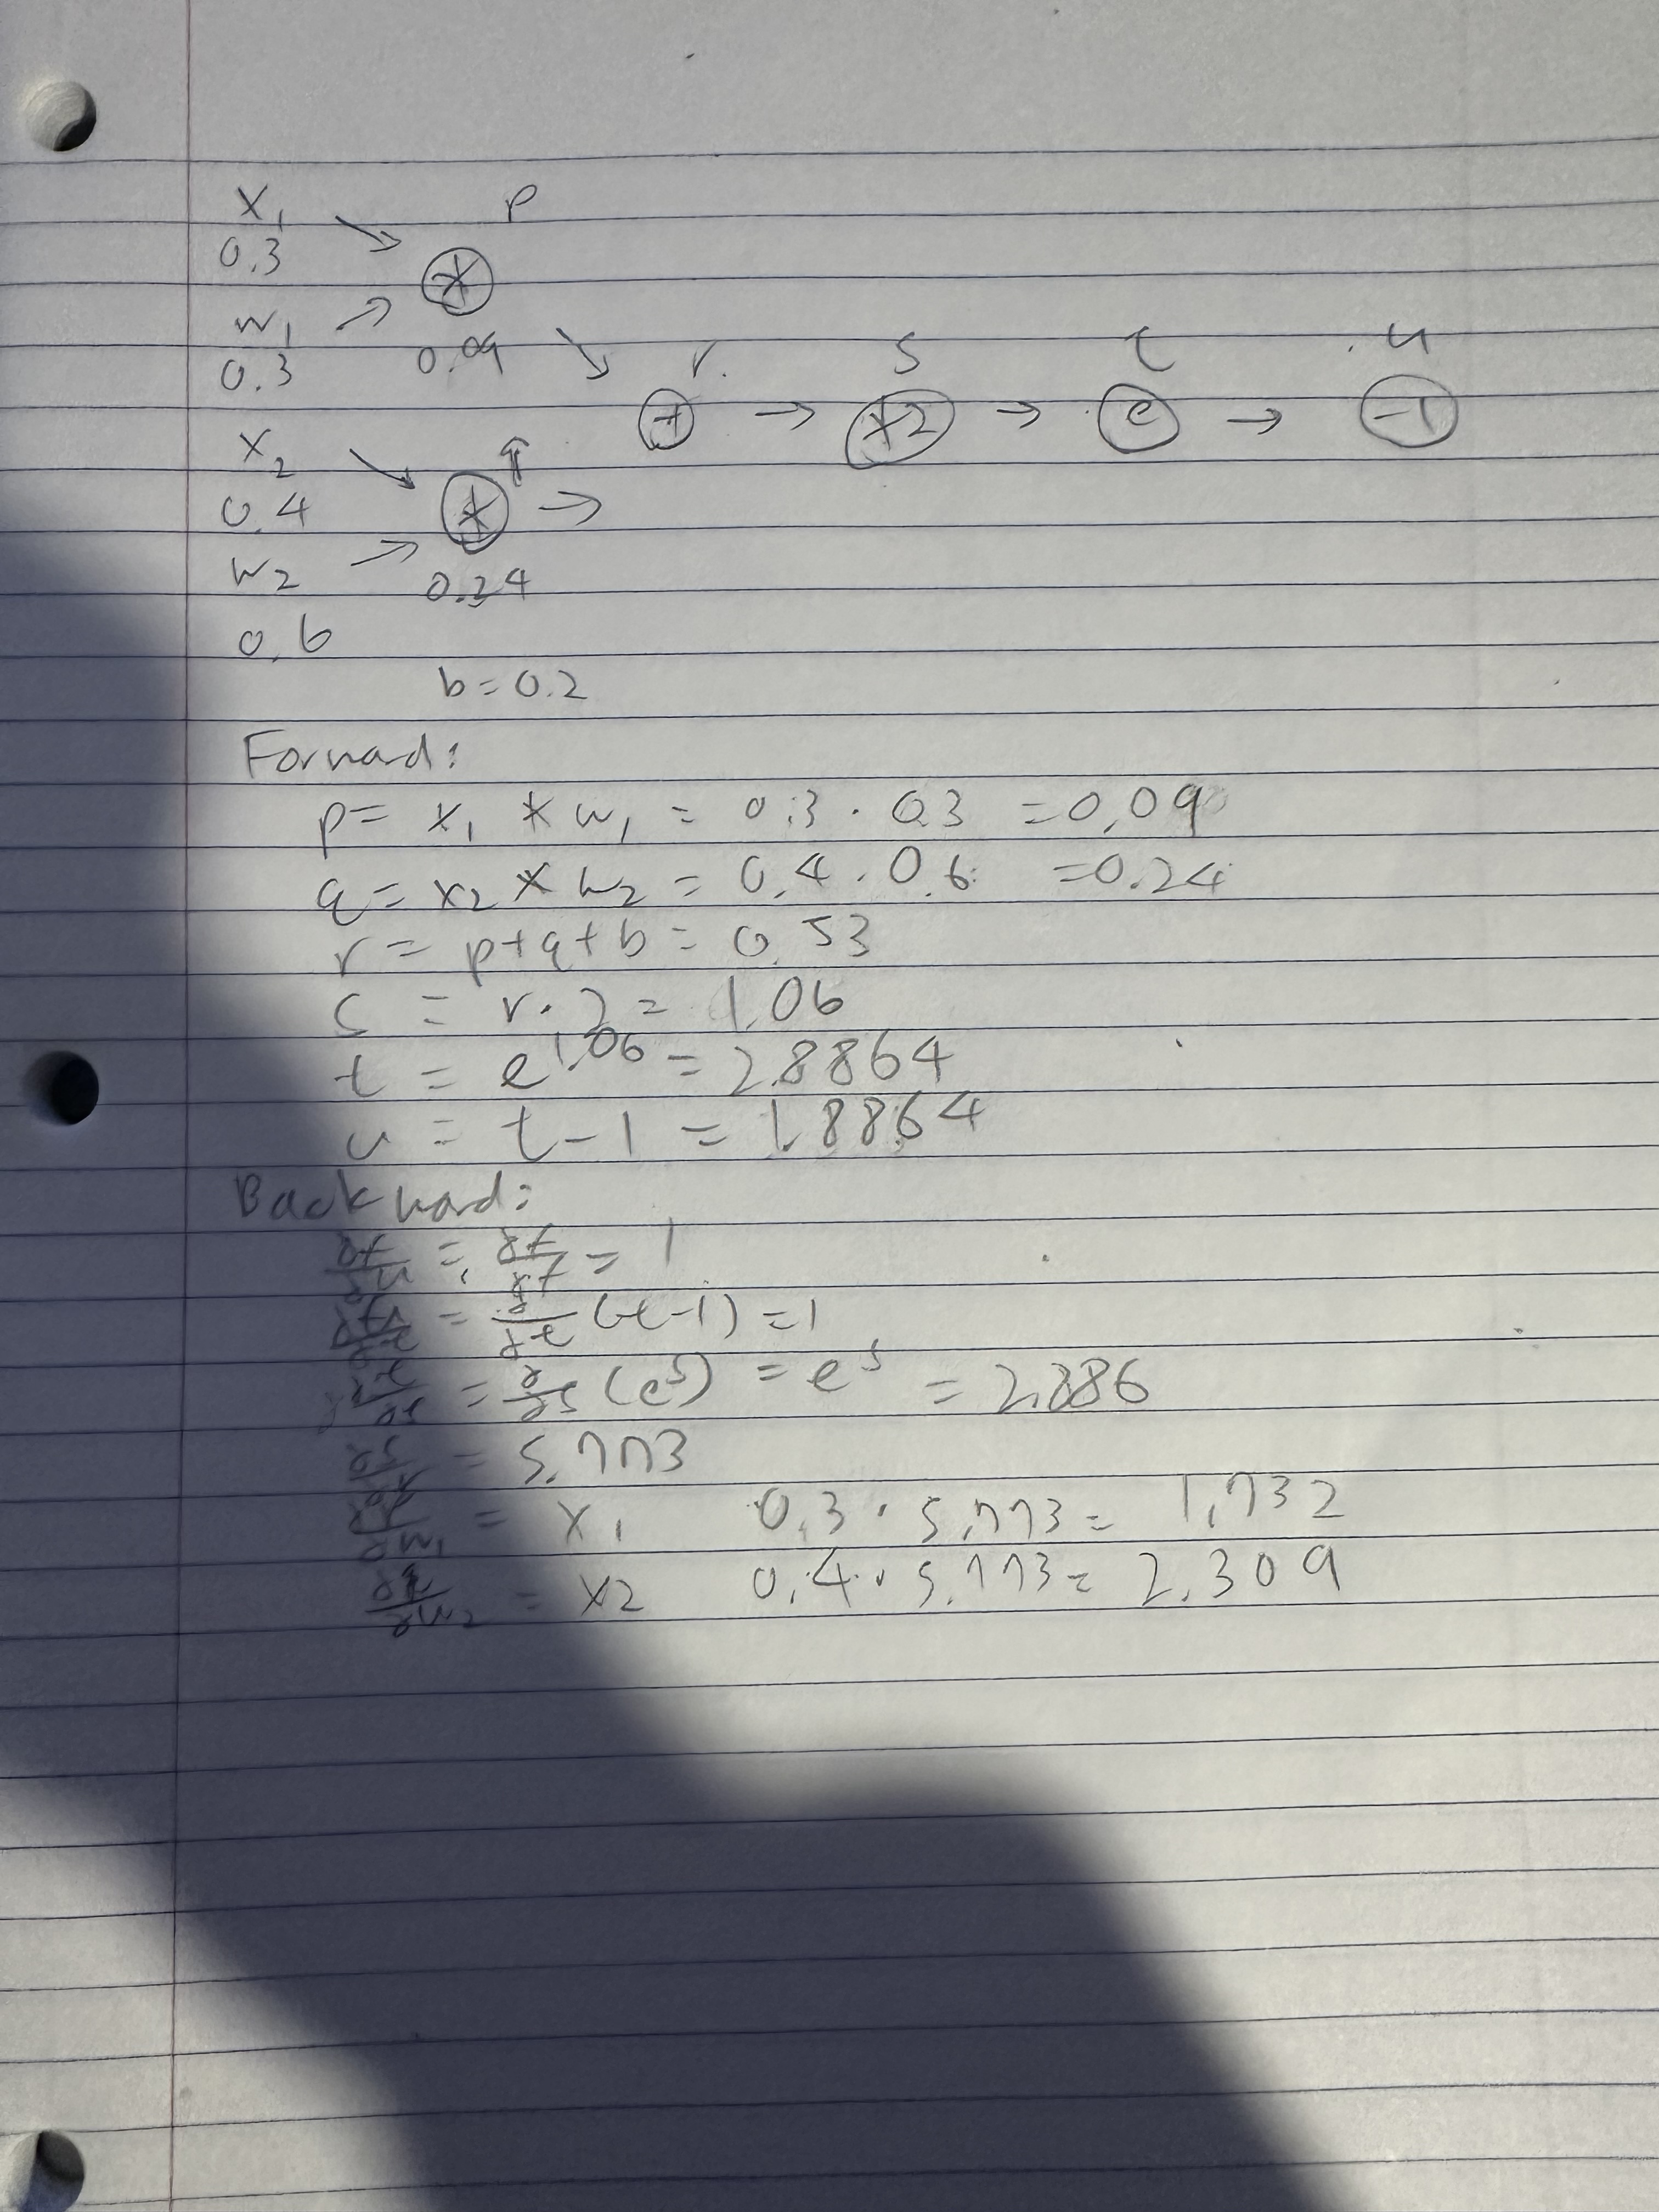 x₁ p
0.3 → (*)
w₁ → 0.09
0.3
r s t u
(+) → (×2) → (e) → (-1)
x₂ → q
0.4 (*) →
w₂ → 0.24
0.6
b=0.2
Forward:
p= x₁ * w₁ = 0.3 · 0.3 =0.09
q= x₂ * w₂ = 0.4 · 0.6 =0.24
r = p+q+b= 0.53
s = r·2= 1.06
t = e^1.06 = 2.8864
u = t-1 = 1.8864
Backward:
∂f/∂u = ∂f/∂f = 1
= ∂/∂t (t-1) =1
∂t/∂s = ∂/∂s (e^s) = e^s = 2.886
∂s/∂r = 5.773
∂p/∂w₁ = x₁ 0.3 · 5.773= 1.732
∂q/∂w₂ = x2 0.4 · 5.773= 2.309